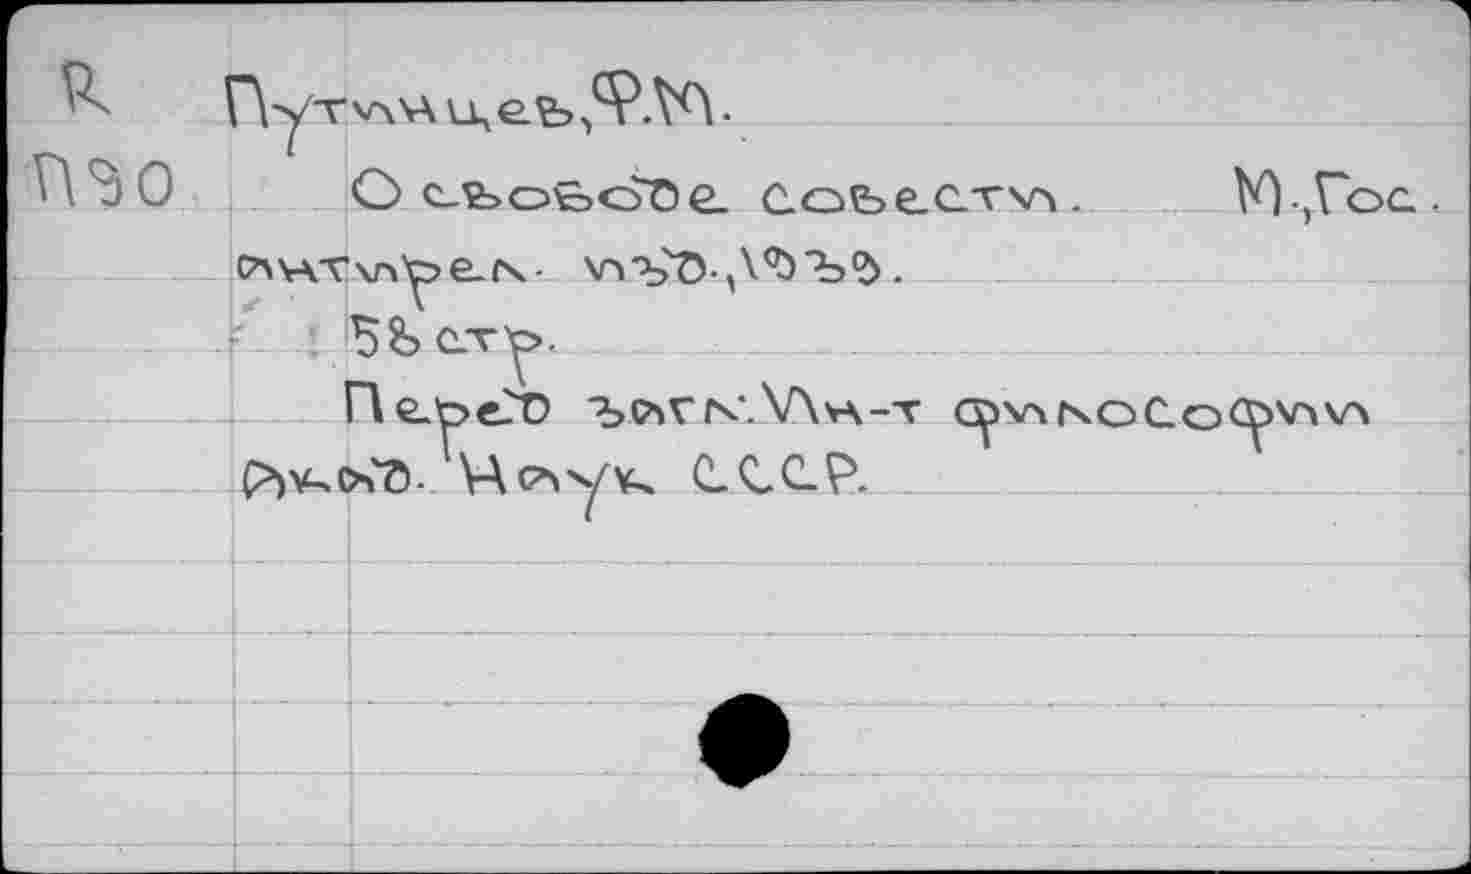 R Путинцев, Ф.М.
П90 О свободе совести. М.,Гос.
антирел. изд.,1939.
58 стр.
Перед загл.: Ин-т философии
Акад. Наук СССР.